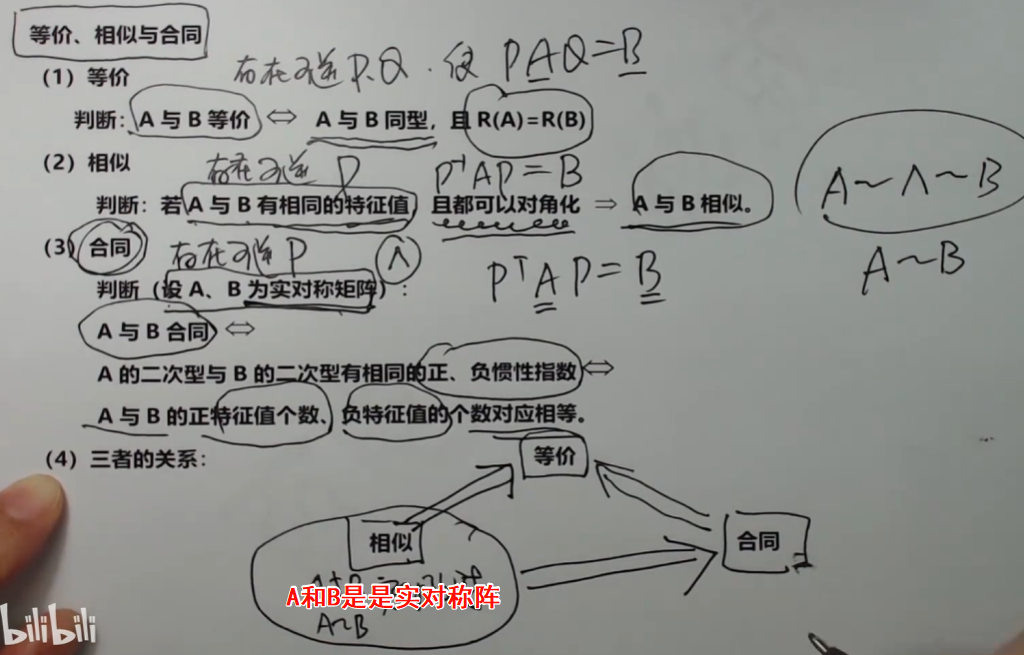 等价、相似与合同
(1) 等价 存在可逆P、Q.使 PAQ=B
判断: A 与 B 等价 ⇔ A 与 B 同型, 且 R(A)=R(B)
(2) 相似 存在可逆 P P⁻¹AP=B
判断: 若 A 与 B 有相同的特征值 且都可以对角化 ⇒ A 与 B 相似。
A~Λ~B
A~B
(3) 合同 存在可逆 P Λ
PᵀAP=B
判断（设 A、B 为实对称矩阵）:
A 与 B 合同 ⇔
A 的二次型与 B 的二次型有相同的正、负惯性指数 ⇔
A 与 B 的正特征值个数、负特征值的个数对应相等。
(4) 三者的关系:
等价
相似
合同
A和B是是实对称阵
A~B
bilibili